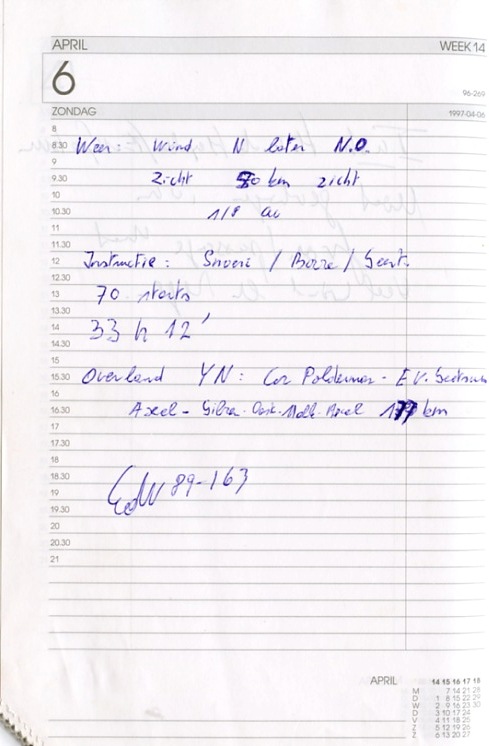 APRIL WEEK 14
6
96-269
ZONDAG 1997-04-06
8
8.30 Weer: Wind N later N.O.
9
9.30 Zicht 50 km zicht
10
10.30 1/8 au
11
11.30
12 Instructie: / /
12.30
13 70 starts
13.30
14 33 h 12'
14.30
15
15.30 Overland YN: Cor Polderman - E V.
16
16.30 Axel - 177 km
17
17.30
18
18.30 89-163
19
19.30
20
20.30
21
APRIL 14 15 16 17 18
M 7 14 21 28
D 1 8 15 22 29
W 2 9 16 23 30
D 3 10 17 24
V 4 11 18 25
Z 5 12 19 26
Z 6 13 20 27